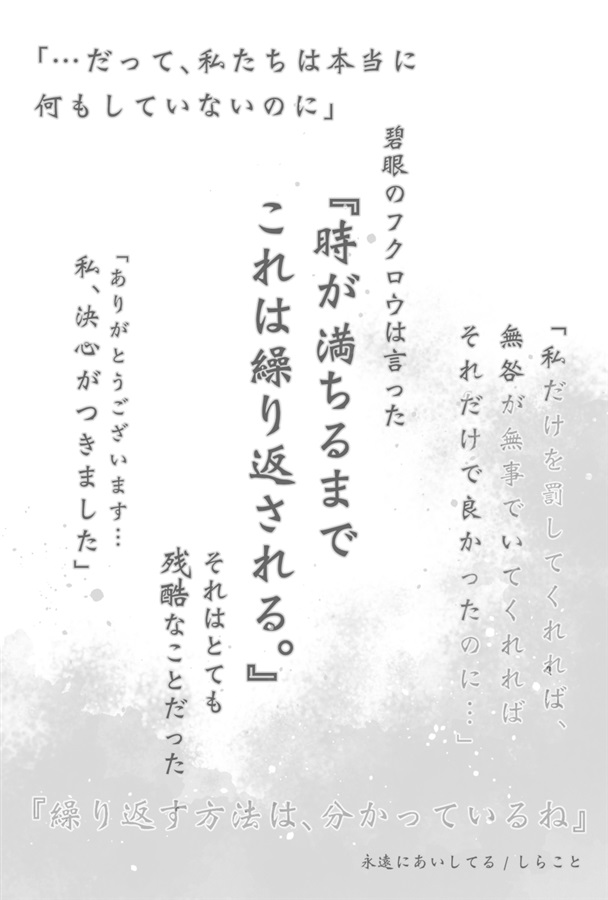 「…だって、私たちは本当に
何もしていないのに」
碧眼のフクロウは言った
『時が満ちるまで
これは繰り返される。』
「私だけを罰してくれれば、
無咎が無事でいてくれれば
それだけで良かったのに…」
「ありがとうございます…
私、決心がつきました」
それはとても
残酷なことだった
『繰り返す方法は、分かっているね』
永遠にあいしてる / しらこと